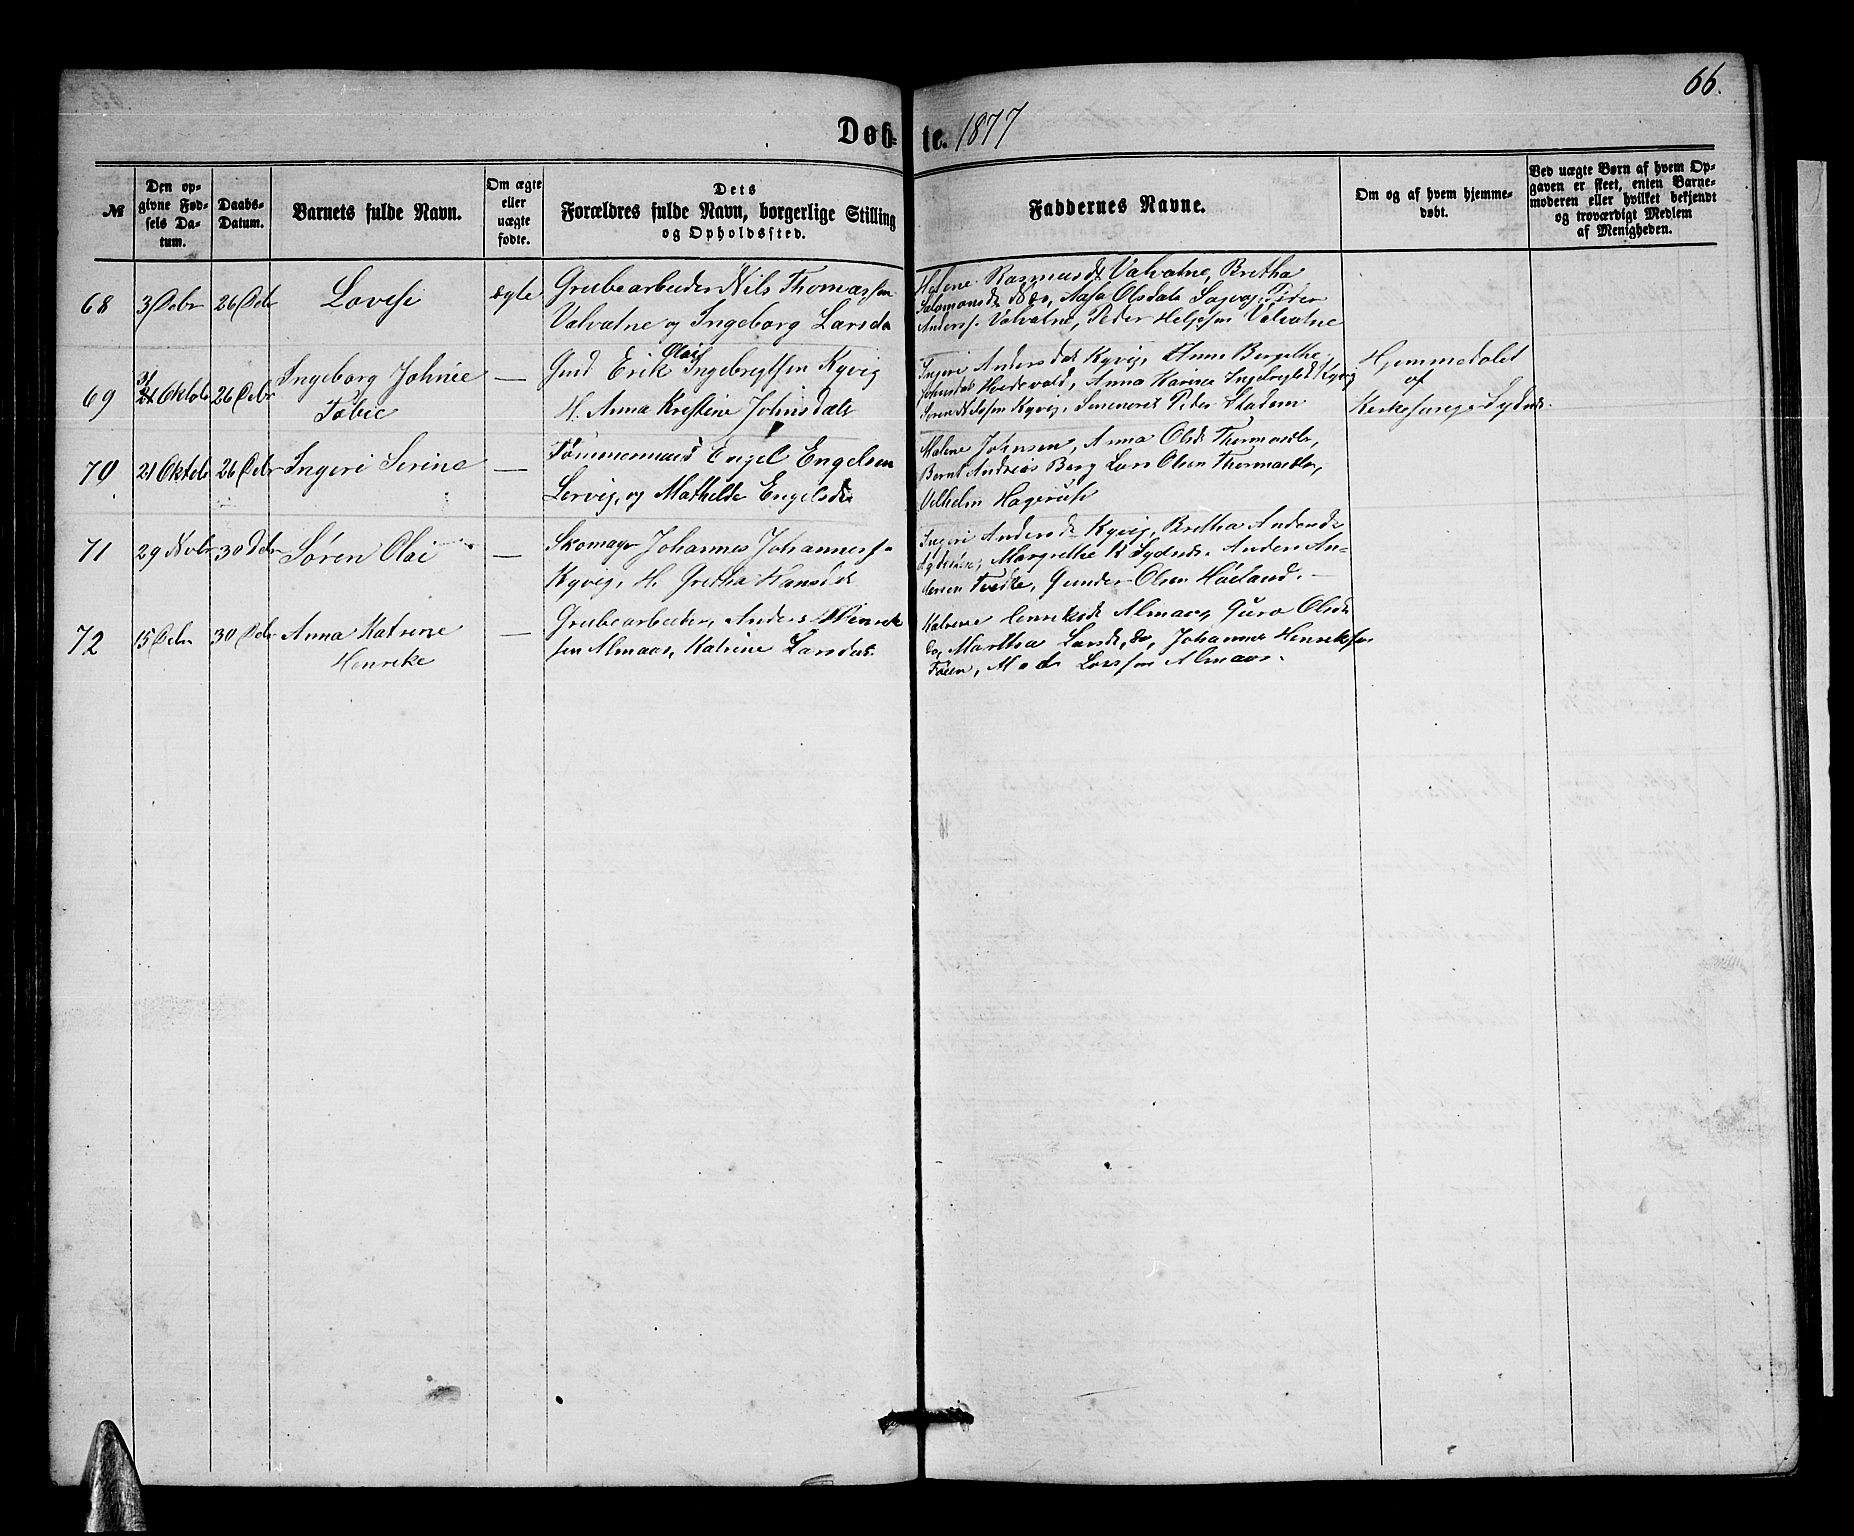 66.
Døb-te. 1877
№
Den op-
givne Fød-
sels Da-
tum.
Daabs-
Datum.
Barnets fulde Navn.
Om ægte
eller
uægte
fødte.
Dets
Forældres fulde Navn, borgerlige Stilling
og Opholdssted.
Faddernes Navne.
Om og af hvem hjemme-
døbt.
Ved uægte Børn af hvem Op-
gaven er skeet, enten Barne-
moderen eller hvilket bekjendt
og troværdigt Medlem
af Menigheden.
68
3 Debr
26 Debr
Lovise
ægte
Grubearbeider Nils Thomassen
Valvatne og Ingeborg Larsdr
Helene Rasmusdr Valvatne, Bretha
Salomonsdr Aasa Olsdatr Sagvog, Peder
Anderss. Valvatne, Peder Helgesen Valvatne
69
31 Oktob
26 Debr
Ingeborg Johnie
Tobie
—
Gmd Erik Olai Ingebregtsen Kyvig
H. Anna Kristine Johnsdatr
Ingeri Andersdatr Kyvig, Anne Bergithe
Johnsdatr Hovdevold, Anna Karine Ingebregtsd Kyvig
Søren Nilssen Kyvig, Peder
Hjemmedøbt
af
Kirkesanger Sydnes
70
21 Oktob
26 Debr
Ingeri Serine
—
Tømmermand Engel Engelsen
Lervig, og Mathilde Engelsdr
Malene Johnsen, Anna Olsdr
Bernt Andreas Berg Lars Olsen
Vilhelm Hagerup
71
29 Novbr
30 Debr
Søren Olai
—
Skomager Johannes Johanness.
Kyvig, H. Gretha Hansdr
Ingeri Andersdr Kyvig, Bretha Andersdr
Margrethe K Sydnes. Anders An-
dersen Tvedte, Gunder Olsen Høeland.
72
15 Debr
30 Debr
Anna Katrine
Henrike
—
Grubearbeider, Anders Henrik
sen Almaas, Katrine Larsdatr
Katrine Henriksdr Almaas, Guro Olsdr
do, Martha Larsdr, do, Johannes Henriksen
Føien, Mads Larssen Almaas.